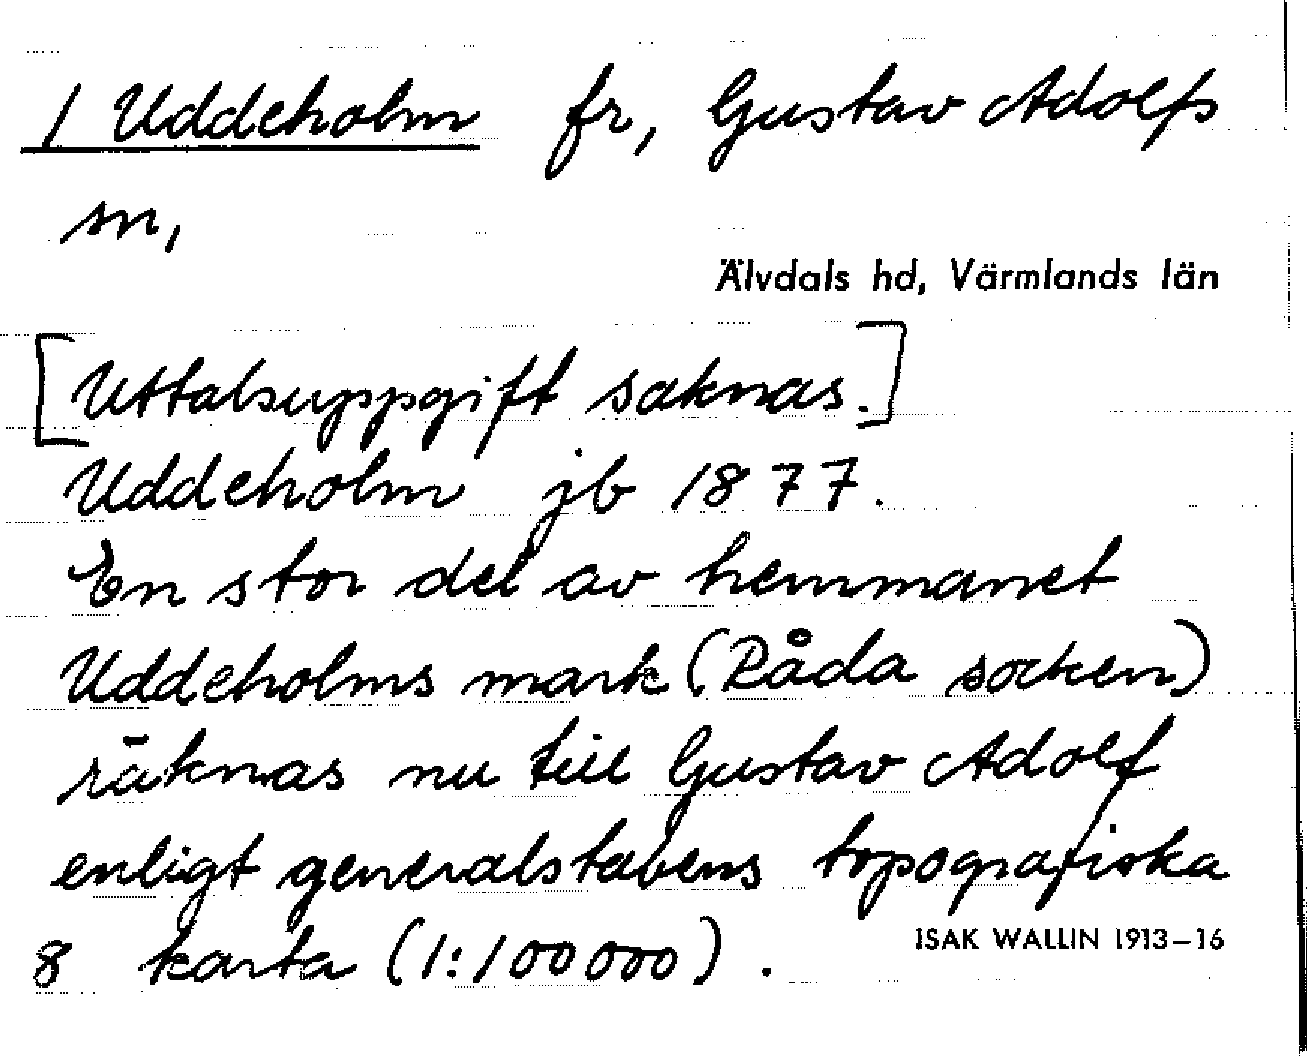 / Uddeholm fr, Gustav Adolfs
sn,
Älvdals hd, Värmlands län
[Uttalsuppgift saknas.]
Uddeholm jb 1877.
En stor del av hemmanet
Uddeholms mark (Råda socken)
räknas nu till Gustav Adolf
enligt generalstabens topografiska
8 karta (1:100000).
ISAK WALLIN 1913–16